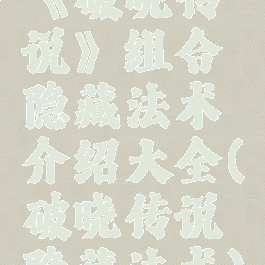 《破晓传
说》组合
隐藏法术
介绍大全(
破晓传说
隐藏法术)